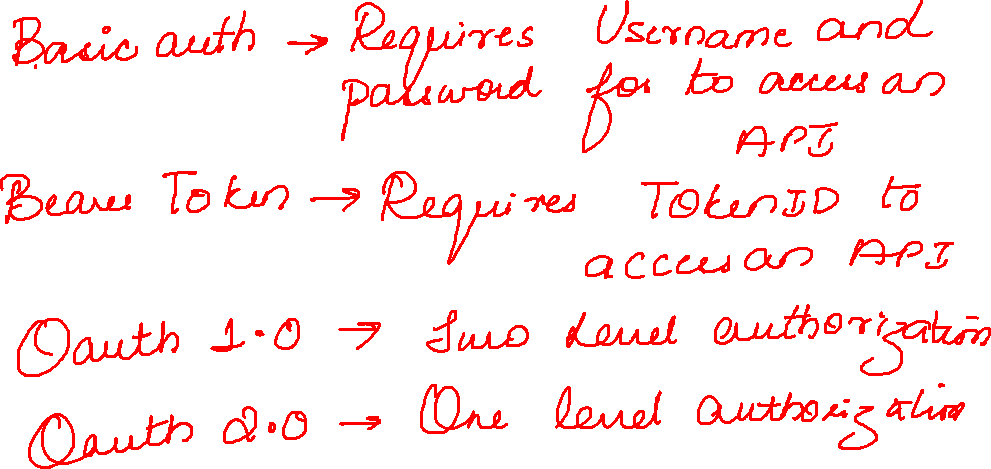 Basic auth → Requires Username and
password for to access an
API
Bearer Token → Requires TokenID to
access an API
Oauth 1.0 → Two Level authorization
Oauth 2.0 → One level authorization